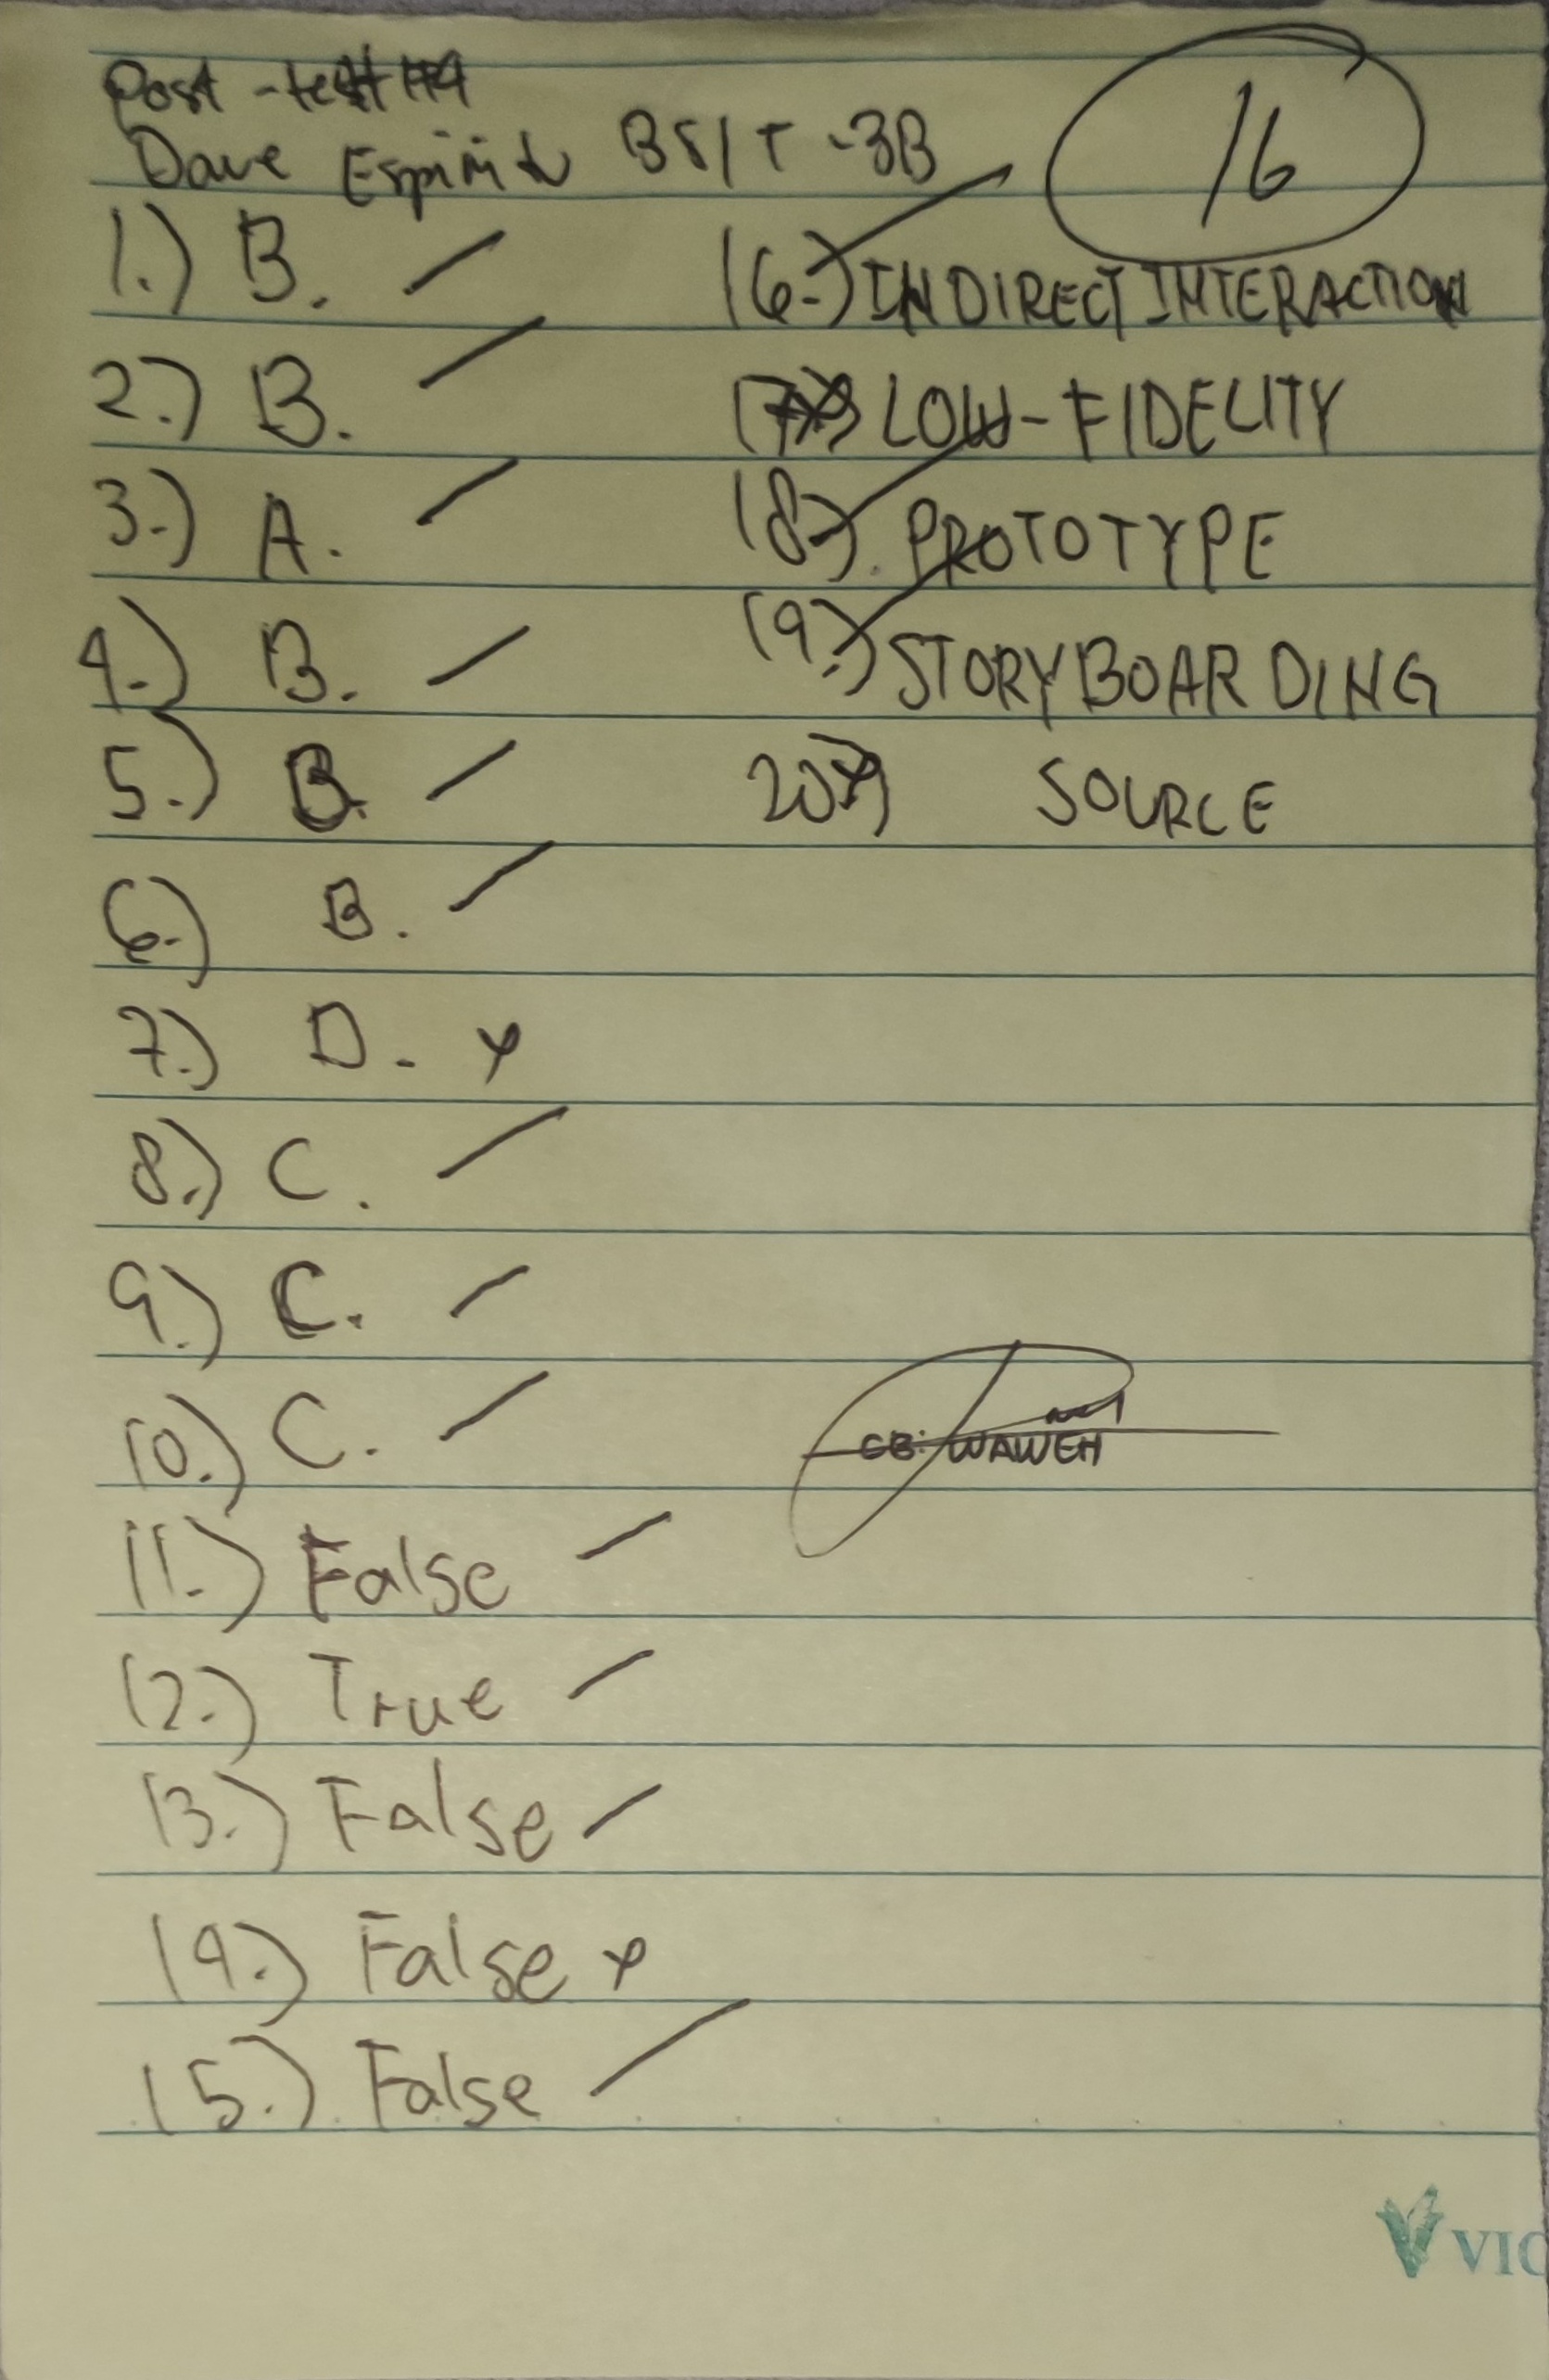 Post-test #4
Dave Espiritu BSIT-3B
16
1.) B.
2.) B.
3.) A.
4.) B.
5.) B.
6.) B.
7.) D.
8.) C.
9.) C.
10.) C.
11.) False
12.) True
13.) False
14.) False
15.) False
16.) INDIRECT INTERACTION
17.) LOW-FIDELITY
18.) PROTOTYPE
19.) STORYBOARDING
20.) SOURCE
CB: WAWEH
VIC